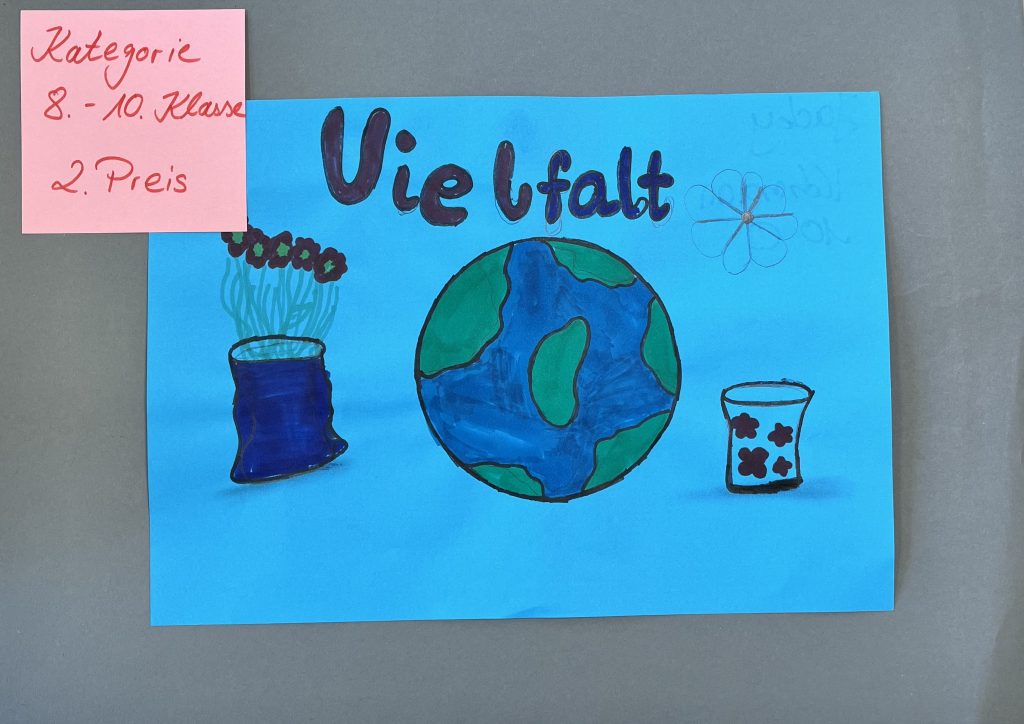 Kategorie
8. - 10. Klasse
2. Preis
Vielfalt